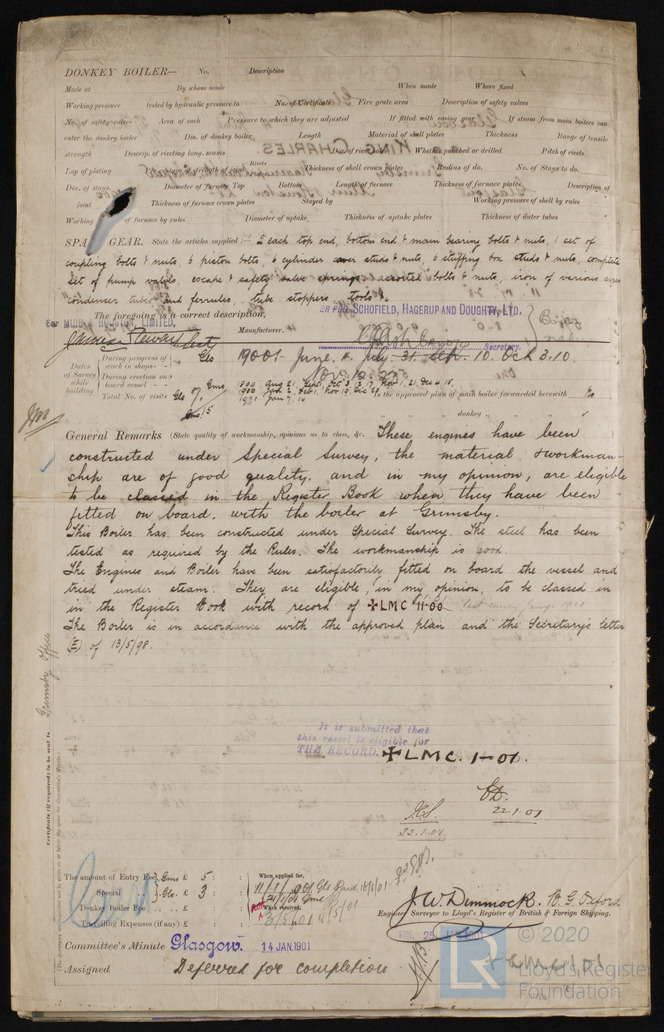 DONKEY BOILER— No. Description
Made at By whom made When made Where fixed
Working pressure tested by hydraulic pressure to No. of Certificate Fire grate area Description of safety valves
No. of safety valves Area of each Pressure to which they are adjusted If fitted with easing gear If steam from main boilers can
enter the donkey boiler Dia. of donkey boiler Length Material of shell plates Thickness Range of tensile
strength Descrip. of riveting long. seams Dia. of rivet holes Whether punched or drilled Pitch of rivets
Lap of plating Rivets Thickness of shell crown plates Radius of do. No. of Stays to do.
Dia. of stays. Diameter of furnace Top Bottom Length of furnace Thickness of furnace plates Description of
joint Thickness of furnace crown plates Stayed by Working pressure of shell by rules
Working of furnace by rules Diameter of uptake Thickness of uptake plates Thickness of water tubes
KING CHARLES
SPA GEAR. State the articles supplied:— 2 each top end, bottom end & main bearing bolts & nuts, 1 set of
coupling bolts & nuts 6 piston bolts, 6 cylinder cover studs & nuts, 6 stuffing box studs & nuts, complete
set of pump valves, escape & safety valve springs, assorted bolts & nuts, iron of various sizes
condenser tubes and ferrules, tube stoppers, tools.
The foregoing is a correct description,
PER PRO SCHOFIELD, HAGERUP AND DOUGHTY, LTD.
For LIMITED,
James Stewart Secty Manufacturer.
Secretary.
Dates of Survey while building
During progress of work in shops— Gls 1900:- June, 11. July. 31. Sep. 10. Oct 3. 10.
During erection on board vessel— Gms 1900 Aug 21, Sept, Oct 3, 12, 17, Nov 1, 21, Dec 4, 15,
Total No. of visits Gls 7, Gms 15 1901 Jan 7. 14 the approved plan of main boiler forwarded herewith No
" " " donkey " " "
General Remarks (State quality of workmanship, opinions as to class, &c. These engines have been
constructed under Special Survey, the material & workman-
ship are of good quality, and in my opinion, are eligible
to be classed in the Register Book when they have been
fitted on board, with the boiler at Grimsby.
This Boiler has been constructed under Special Survey. The steel has been
tested as required by the Rules. The workmanship is good.
The Engines and Boiler have been satisfactorily fitted on board the vessel and
tried under steam. They are eligible, in my opinion, to be classed in
in the Register Book with record of ✠LMC 11·00
The Boiler is in accordance with the approved plan and the Secretary's letter
(E) of 13/5/98.
Certificate (if required) to be sent to Grimsby Office
It is submitted that
this vessel is eligible for
THE RECORD. ✠LMC. 1-01.
22.1.01
22.1.01
The amount of Entry Fee Gms £ 5 : : When applied for,
Special Gls. £ 3 : : 11/1/1901 Gls Paid 18/1/01
Donkey Boiler Fee £ : : 21/1/01 Gms
When received,
Travelling Expenses (if any) £ : : 3/5/01
J. W. Dimmock. W. G. Oxford
Engineer Surveyor to Lloyd's Register of British & Foreign Shipping.
Committee's Minute Glasgow. 14 JAN. 1901
Assigned Deferred for completion
© 2020
LR
Lloyd's Register
Foundation